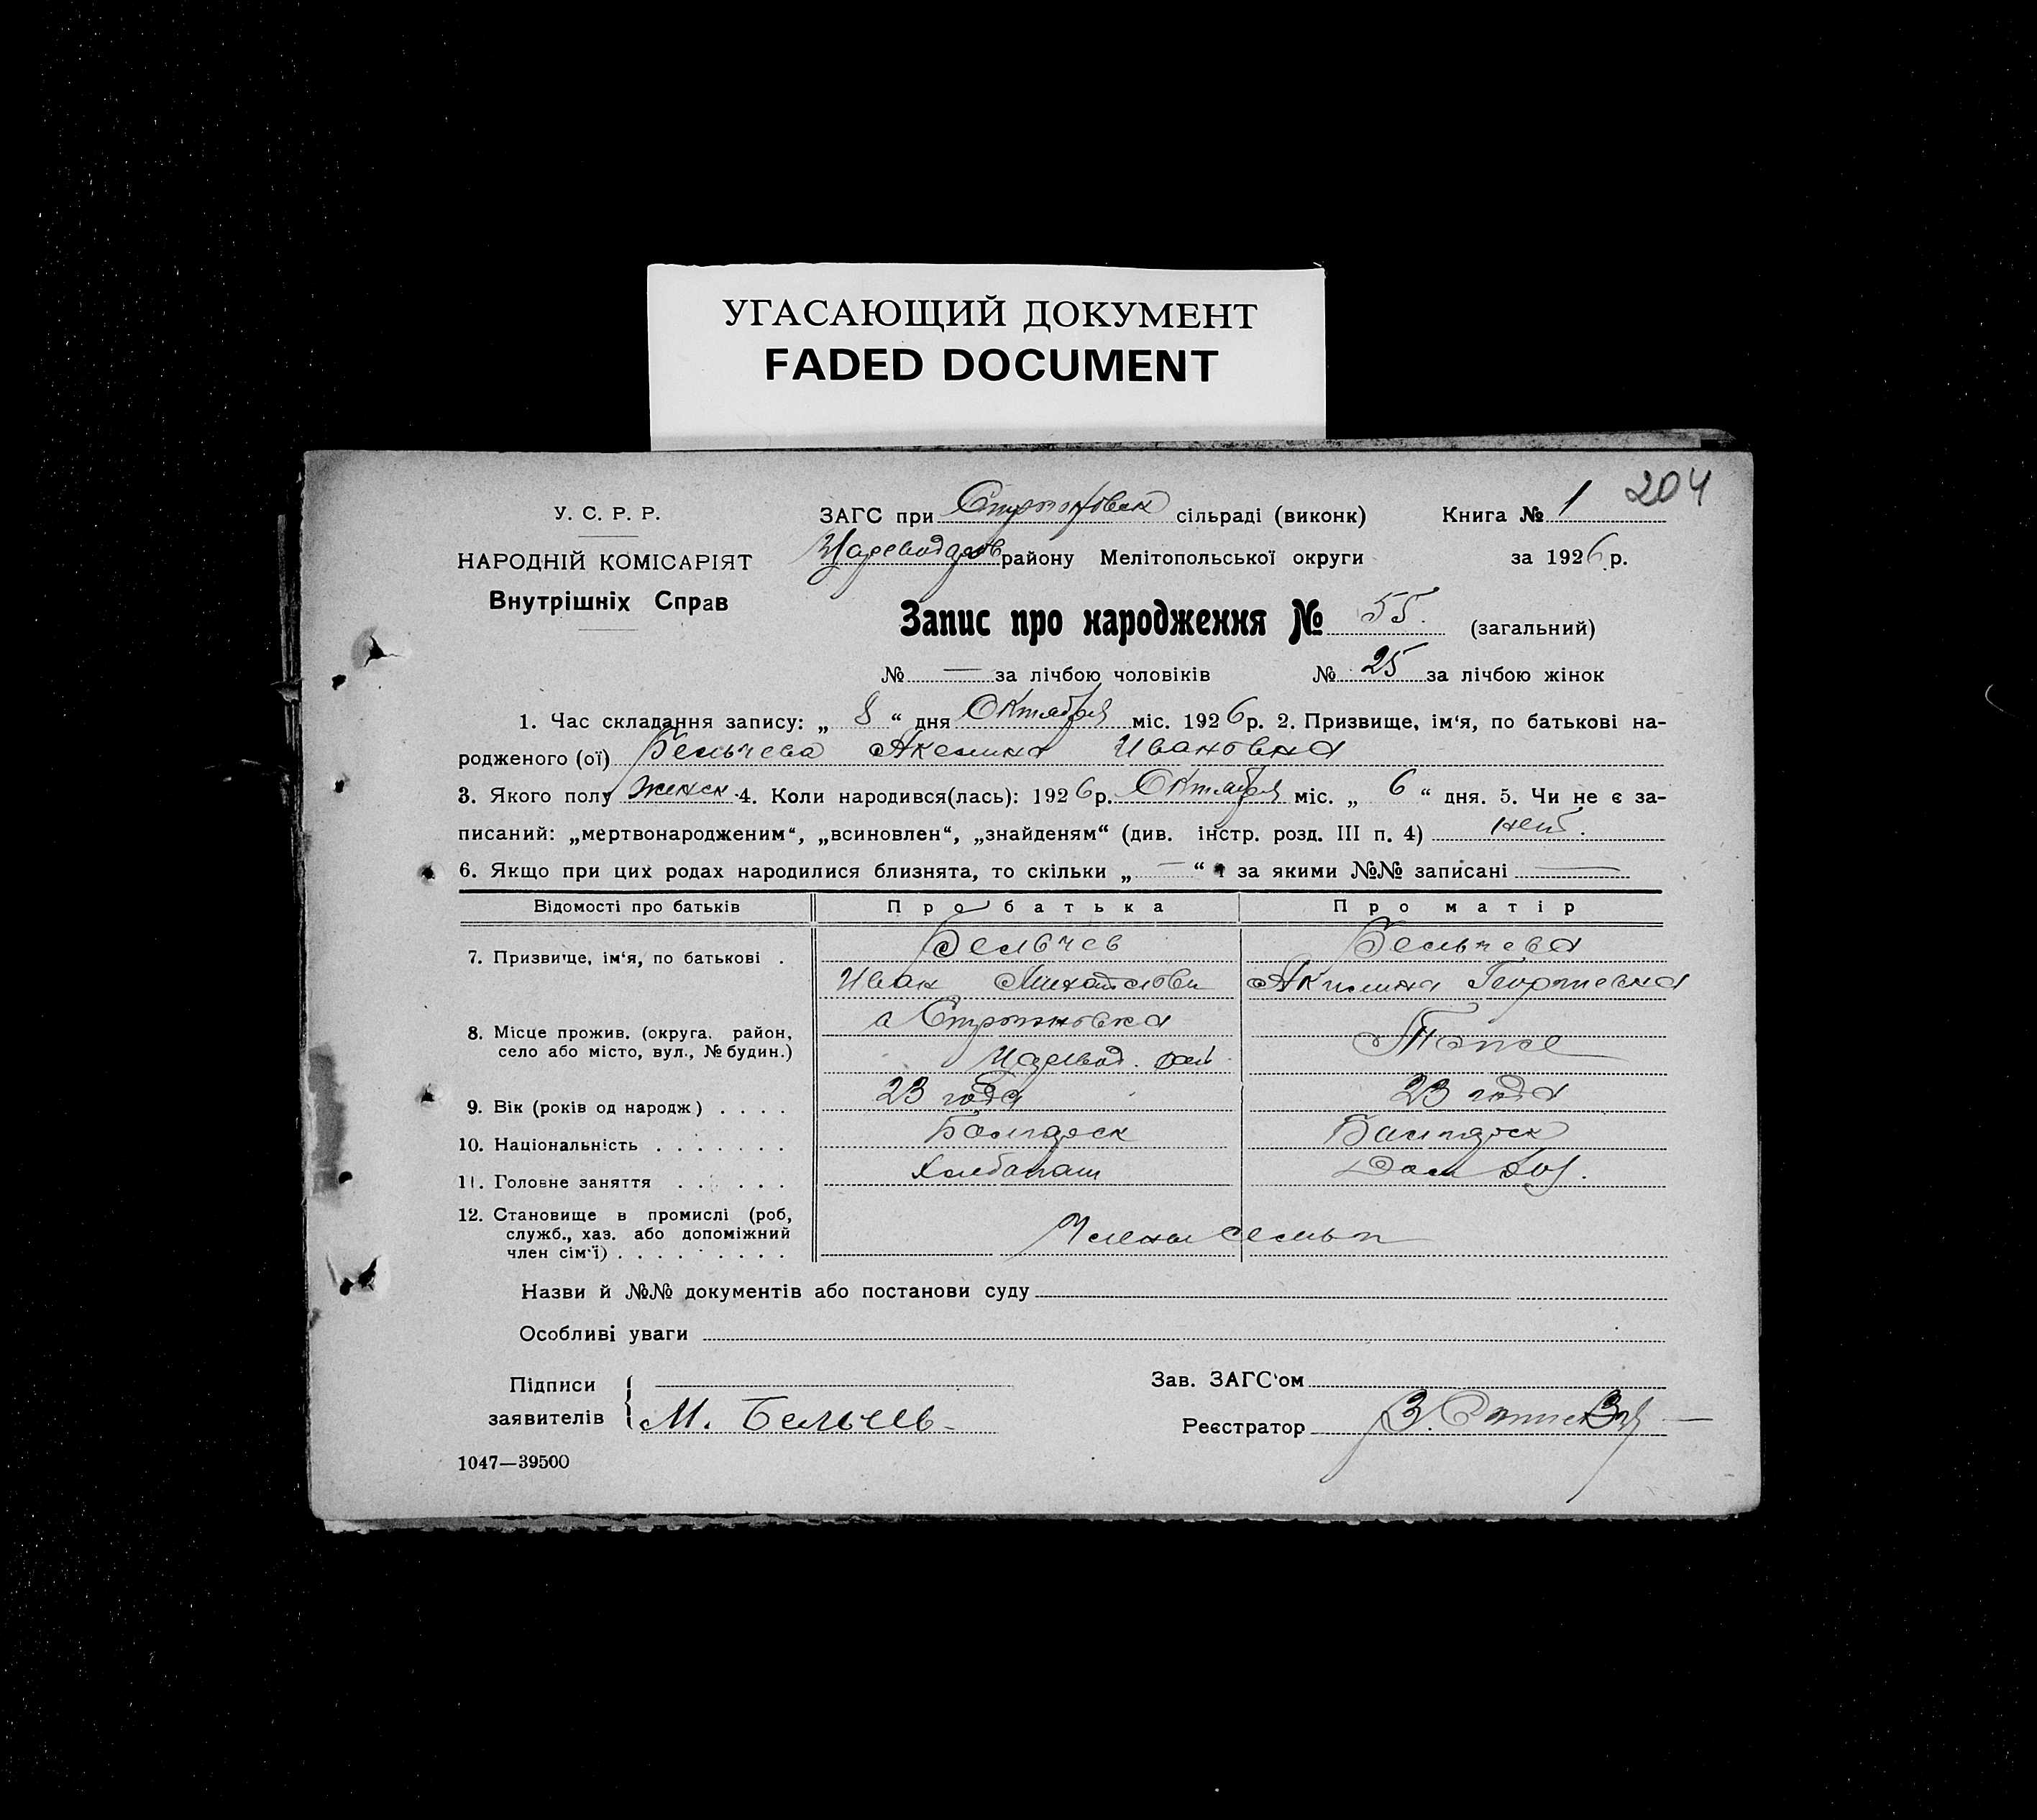 УГАСАЮЩИЙ ДОКУМЕНТ
FADED DOCUMENT
204
У. С. Р. Р.
НАРОДНІЙ КОМІСАРІЯТ
Внутрішніх Справ
ЗАГС при сільраді (виконк) Книга № 1
району Мелітопольської округи за 1926 р.
Запис про народження № 55. (загальний)
№ — за лічбою чоловіків № 25 за лічбою жінок
1. Час складання запису: „ 8 “ дня Октября міс. 1926 р. 2. Призвище, ім‘я, по батькові на-
родженого (ої) Бельчева Акелина Ивановна
3. Якого полу женск. 4. Коли народився(лась): 1926 р. Октября міс. „ 6 “ дня. 5. Чи не є за-
писаний: „мертвонародженим“, „всиновлен“, „знайденям“ (див. інстр. розд. III п. 4) нет.
6. Якщо при цих родах народилися близнята, то скільки „ — “ і за якими №№ записані —
Відомості про батьків Про батька Про матір
7. Призвище, ім‘я, по батькові . Бельчев Бельчева
Иван Акилина Георгиевна
8. Місце прожив. (округа. район,
село або місто, вул., № будин.)
Тоже
9. Вік (років од народж) . . . . 23 года 23 года
10. Національність . . . . . . .
11. Головне заняття . . . . . Хлебопаш
12. Становище в промислі (роб,
служб., хаз. або допоміжний
член сім‘ї) . . . . . . . . . Члены семьи
Назви й №№ документів або постанови суду
Особливі уваги
Підписи
заявителів М. Бельчев
Зав. ЗАГС‘ом
Реєстратор
1047—39500